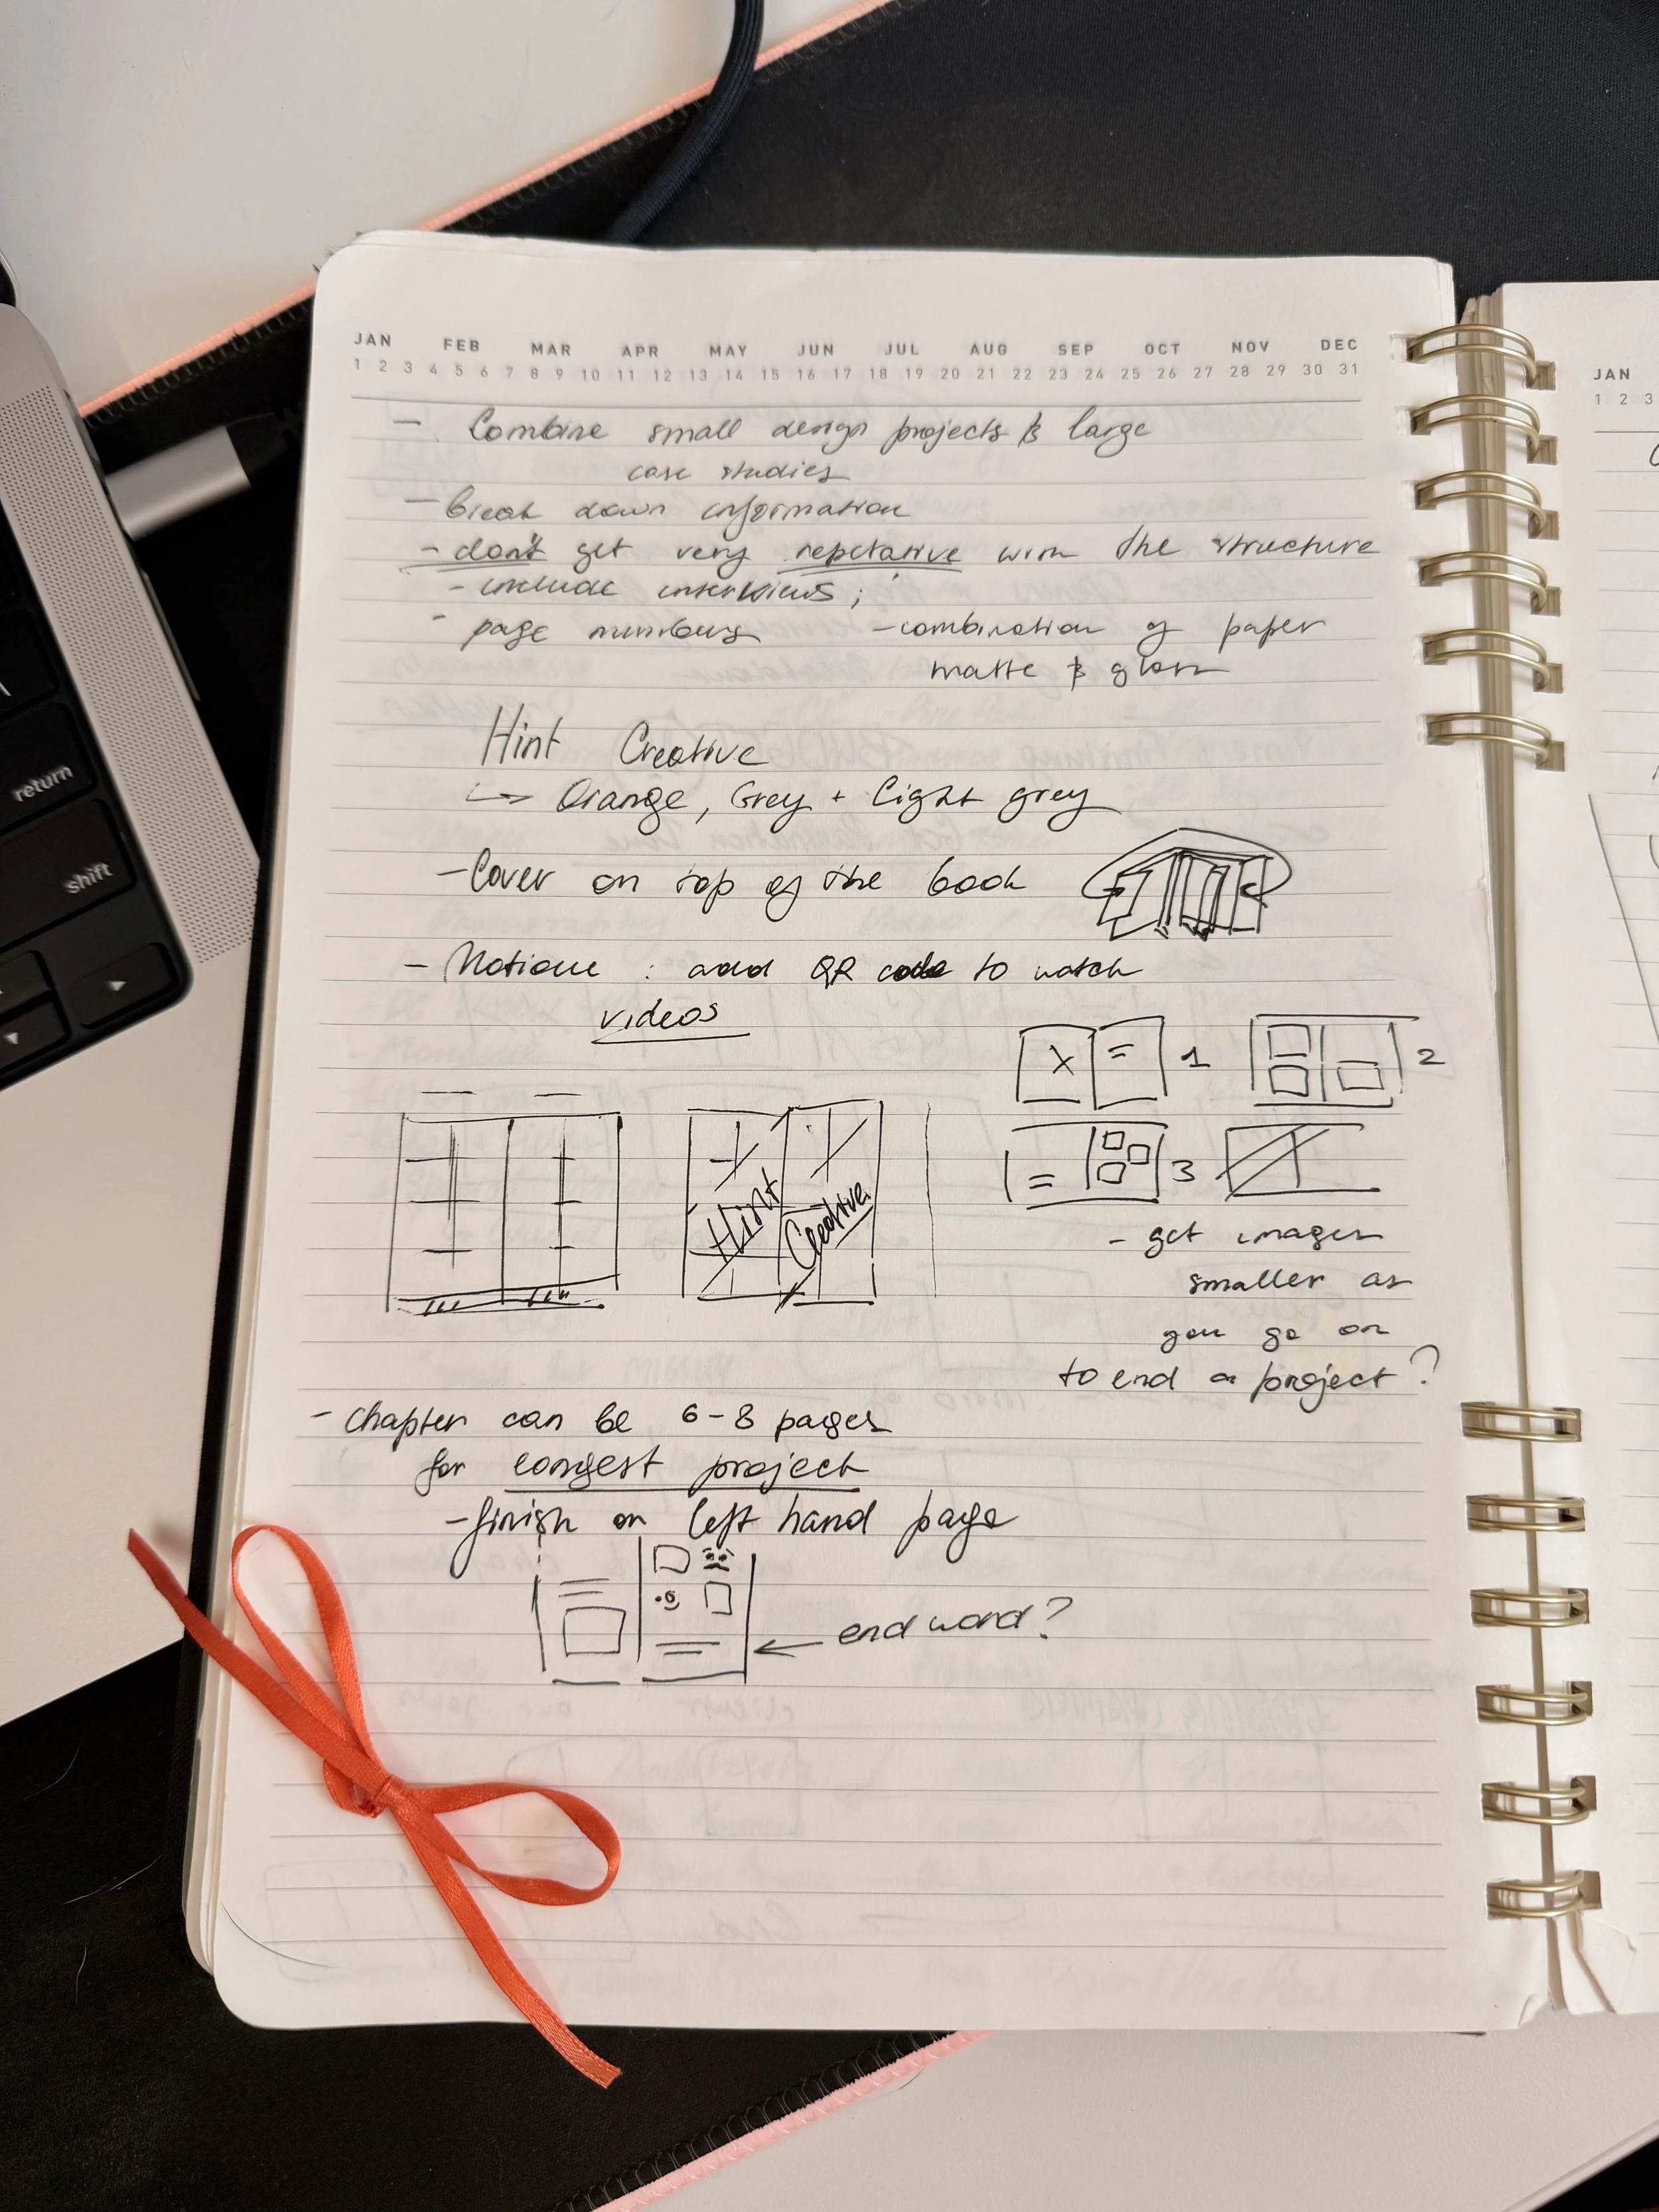 JAN FEB MAR APR MAY JUN JUL AUG SEP OCT NOV DEC
1 2 3 4 5 6 7 8 9 10 11 12 13 14 15 16 17 18 19 20 21 22 23 24 25 26 27 28 29 30 31
- Combine small design projects & large
case studies
- break down information
- don't get very repetative with the structure
- include interviews;
- page numbers
- combination of paper
matte & gloss
Hint Creative
↳ Orange, Grey + light grey
- Cover on top of the book
- Motion : add QR code to watch
videos
1
2
3
Hint Creative
- get images
smaller as
you go on
to end a project?
- chapter can be 6-8 pages
for longest project
- finish on left hand page
← end word?
return
shift
JAN
1 2 3